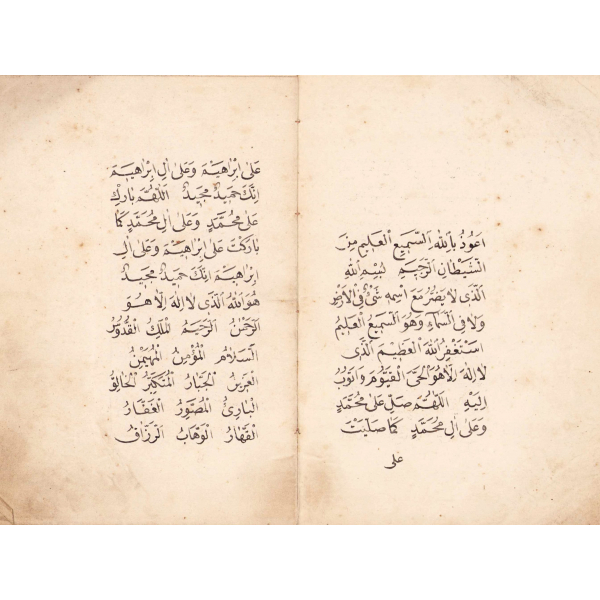 اعوذ بالله السميع العليم من
الشيطان الرجيم بسم الله
الذى لا يضر مع اسمه شئ فى الارض
ولا فى السماء وهو السميع العليم
استغفر الله العظيم الذى
لا اله الا هو الحى القيوم واتوب
اليه اللهم صل على محمد
وعلى ال محمد كما صليت
على
على ابراهيم وعلى ال ابراهيم
انك حميد مجيد اللهم بارك
على محمد وعلى ال محمد كما
باركت على ابراهيم وعلى ال
ابراهيم انك حميد مجيد
هو الله الذى لا اله الا هو
الرحمن الرحيم الملك القدوس
السلام المؤمن المهيمن
العزيز الجبار المتكبر الخالق
البارئ المصور الغفار
القهار الوهاب الرزاق